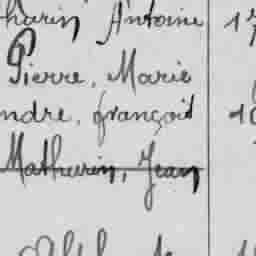 harin Antoine 1
Pierre, Marie
ndre, françois 10
Mathurin, Jean